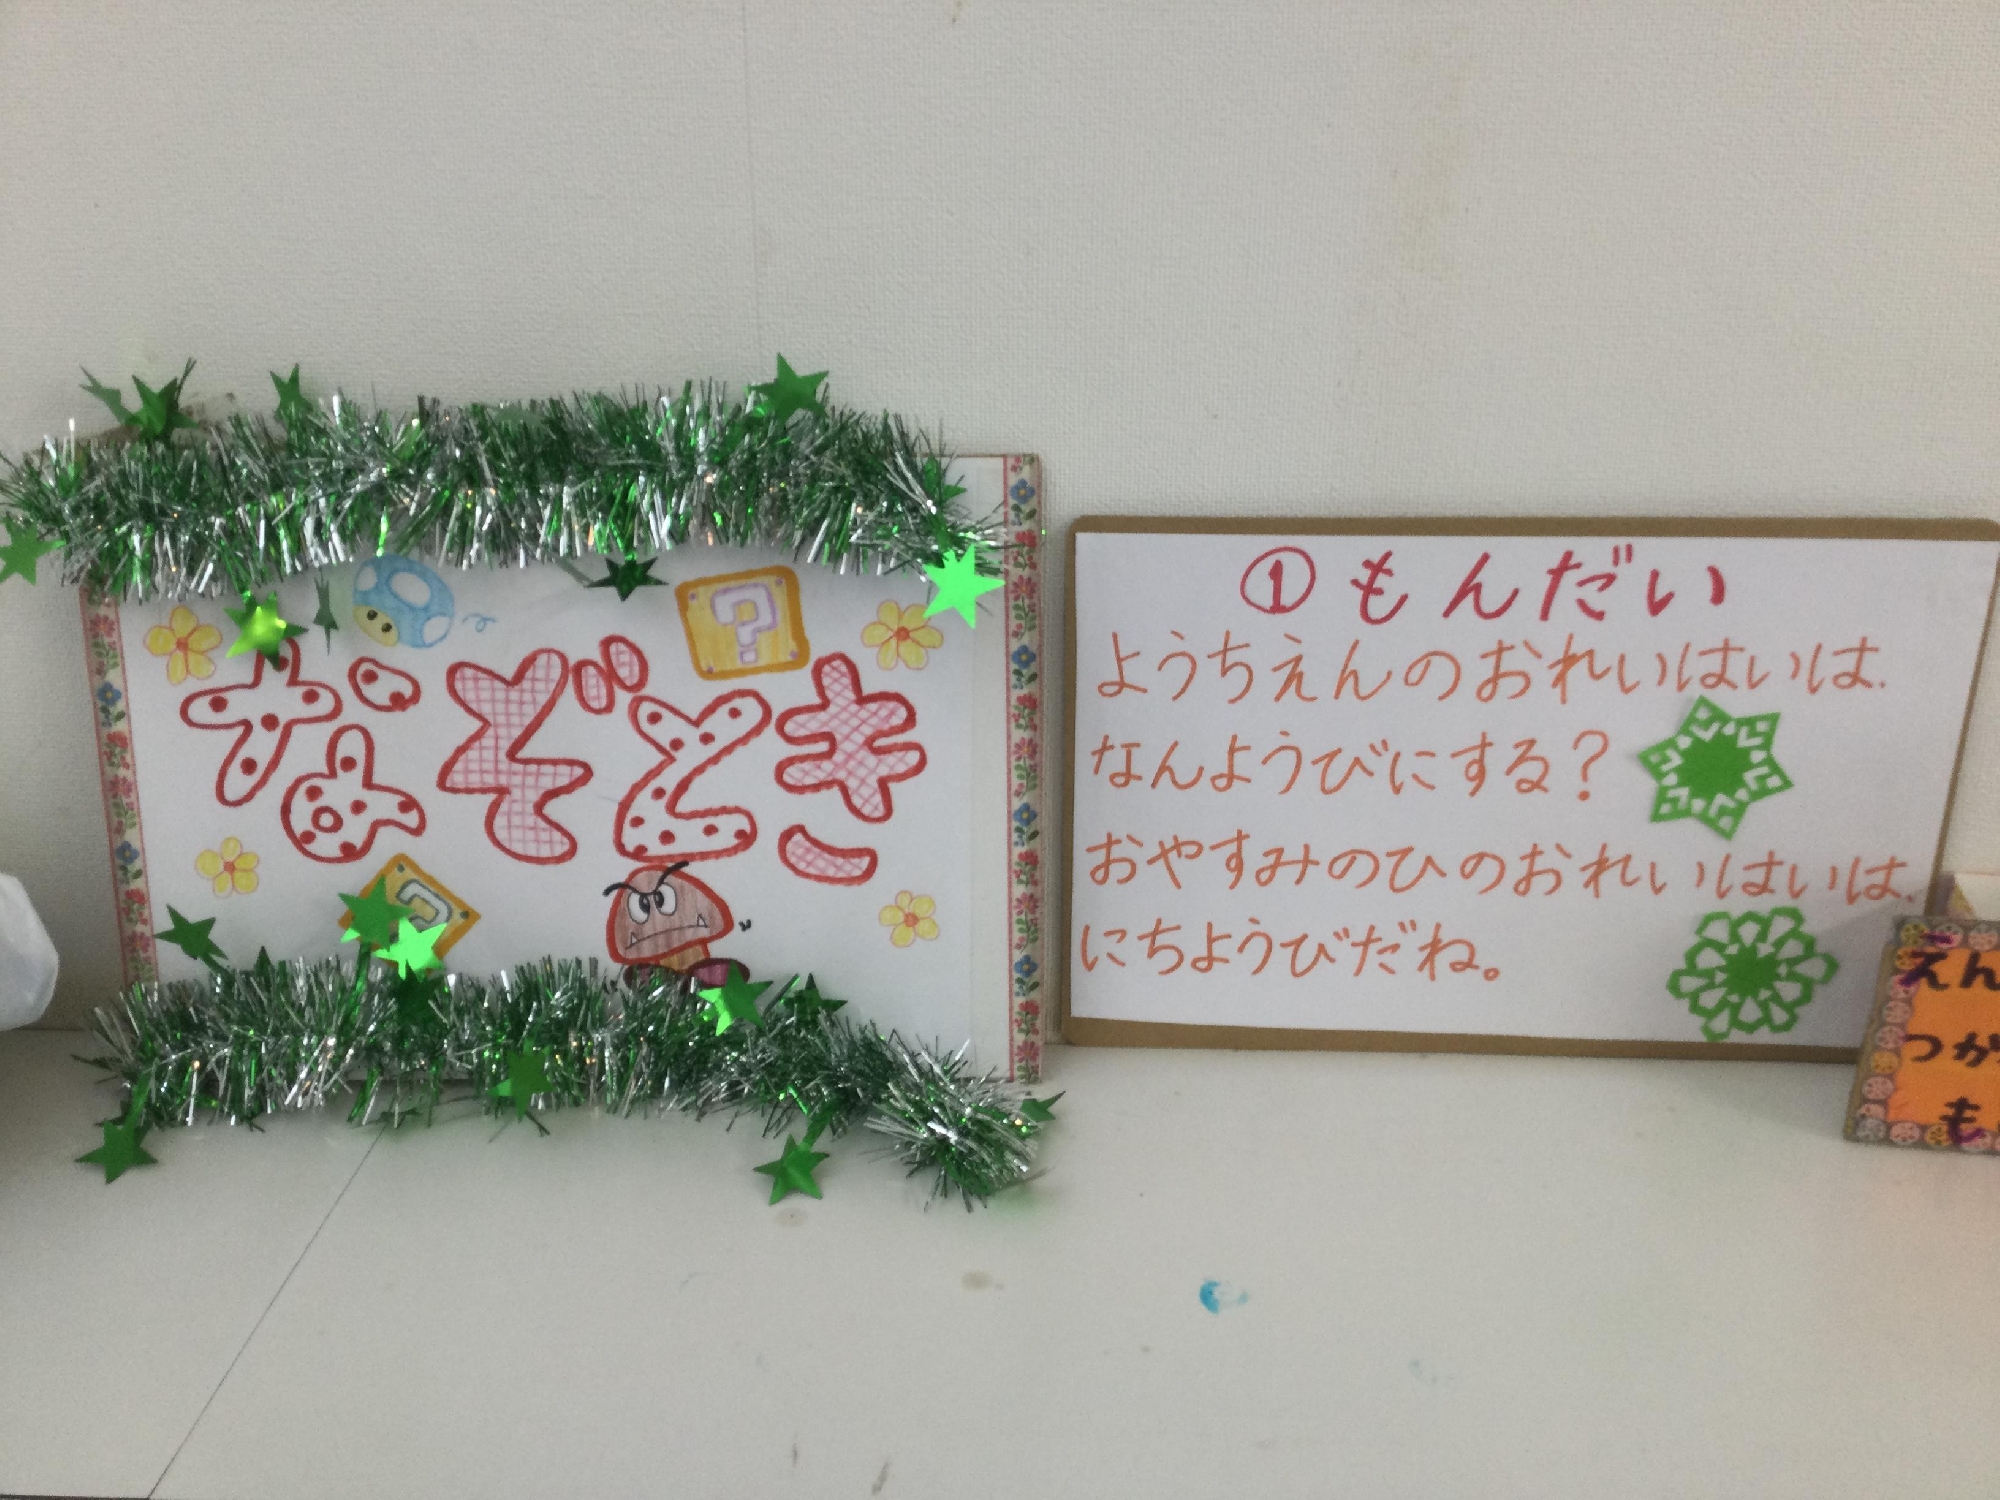 なぞとき
?
?
① もんだい
ようちえんのおれいはいは、
なんようびにする?
おやすみのひのおれいはいは、
にちようびだね。
えん
つか
も